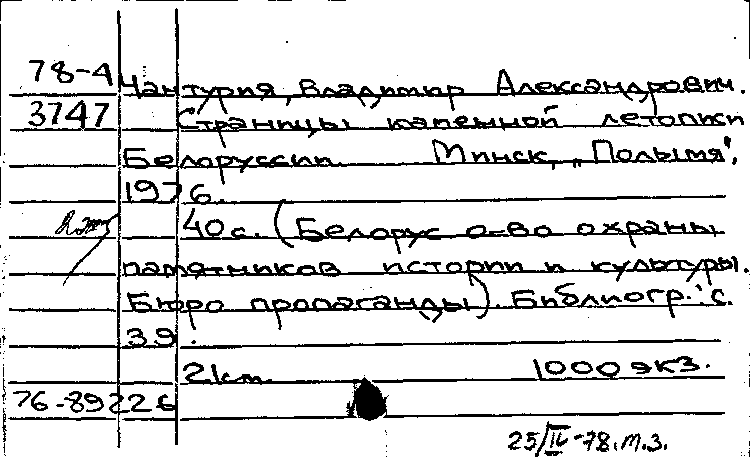 78-4 Чантурия, Владимир Александрович.
3747 Страницы каменной летописи
Белоруссии. Минск, „Полымя",
1976.
40 с. (Белорус о-во охраны
памятников истории и культуры.
Бюро пропаганды). Библиогр.: с.
39.
2 кт. 1000 экз.
76-89226
25/IV-78. т.з.